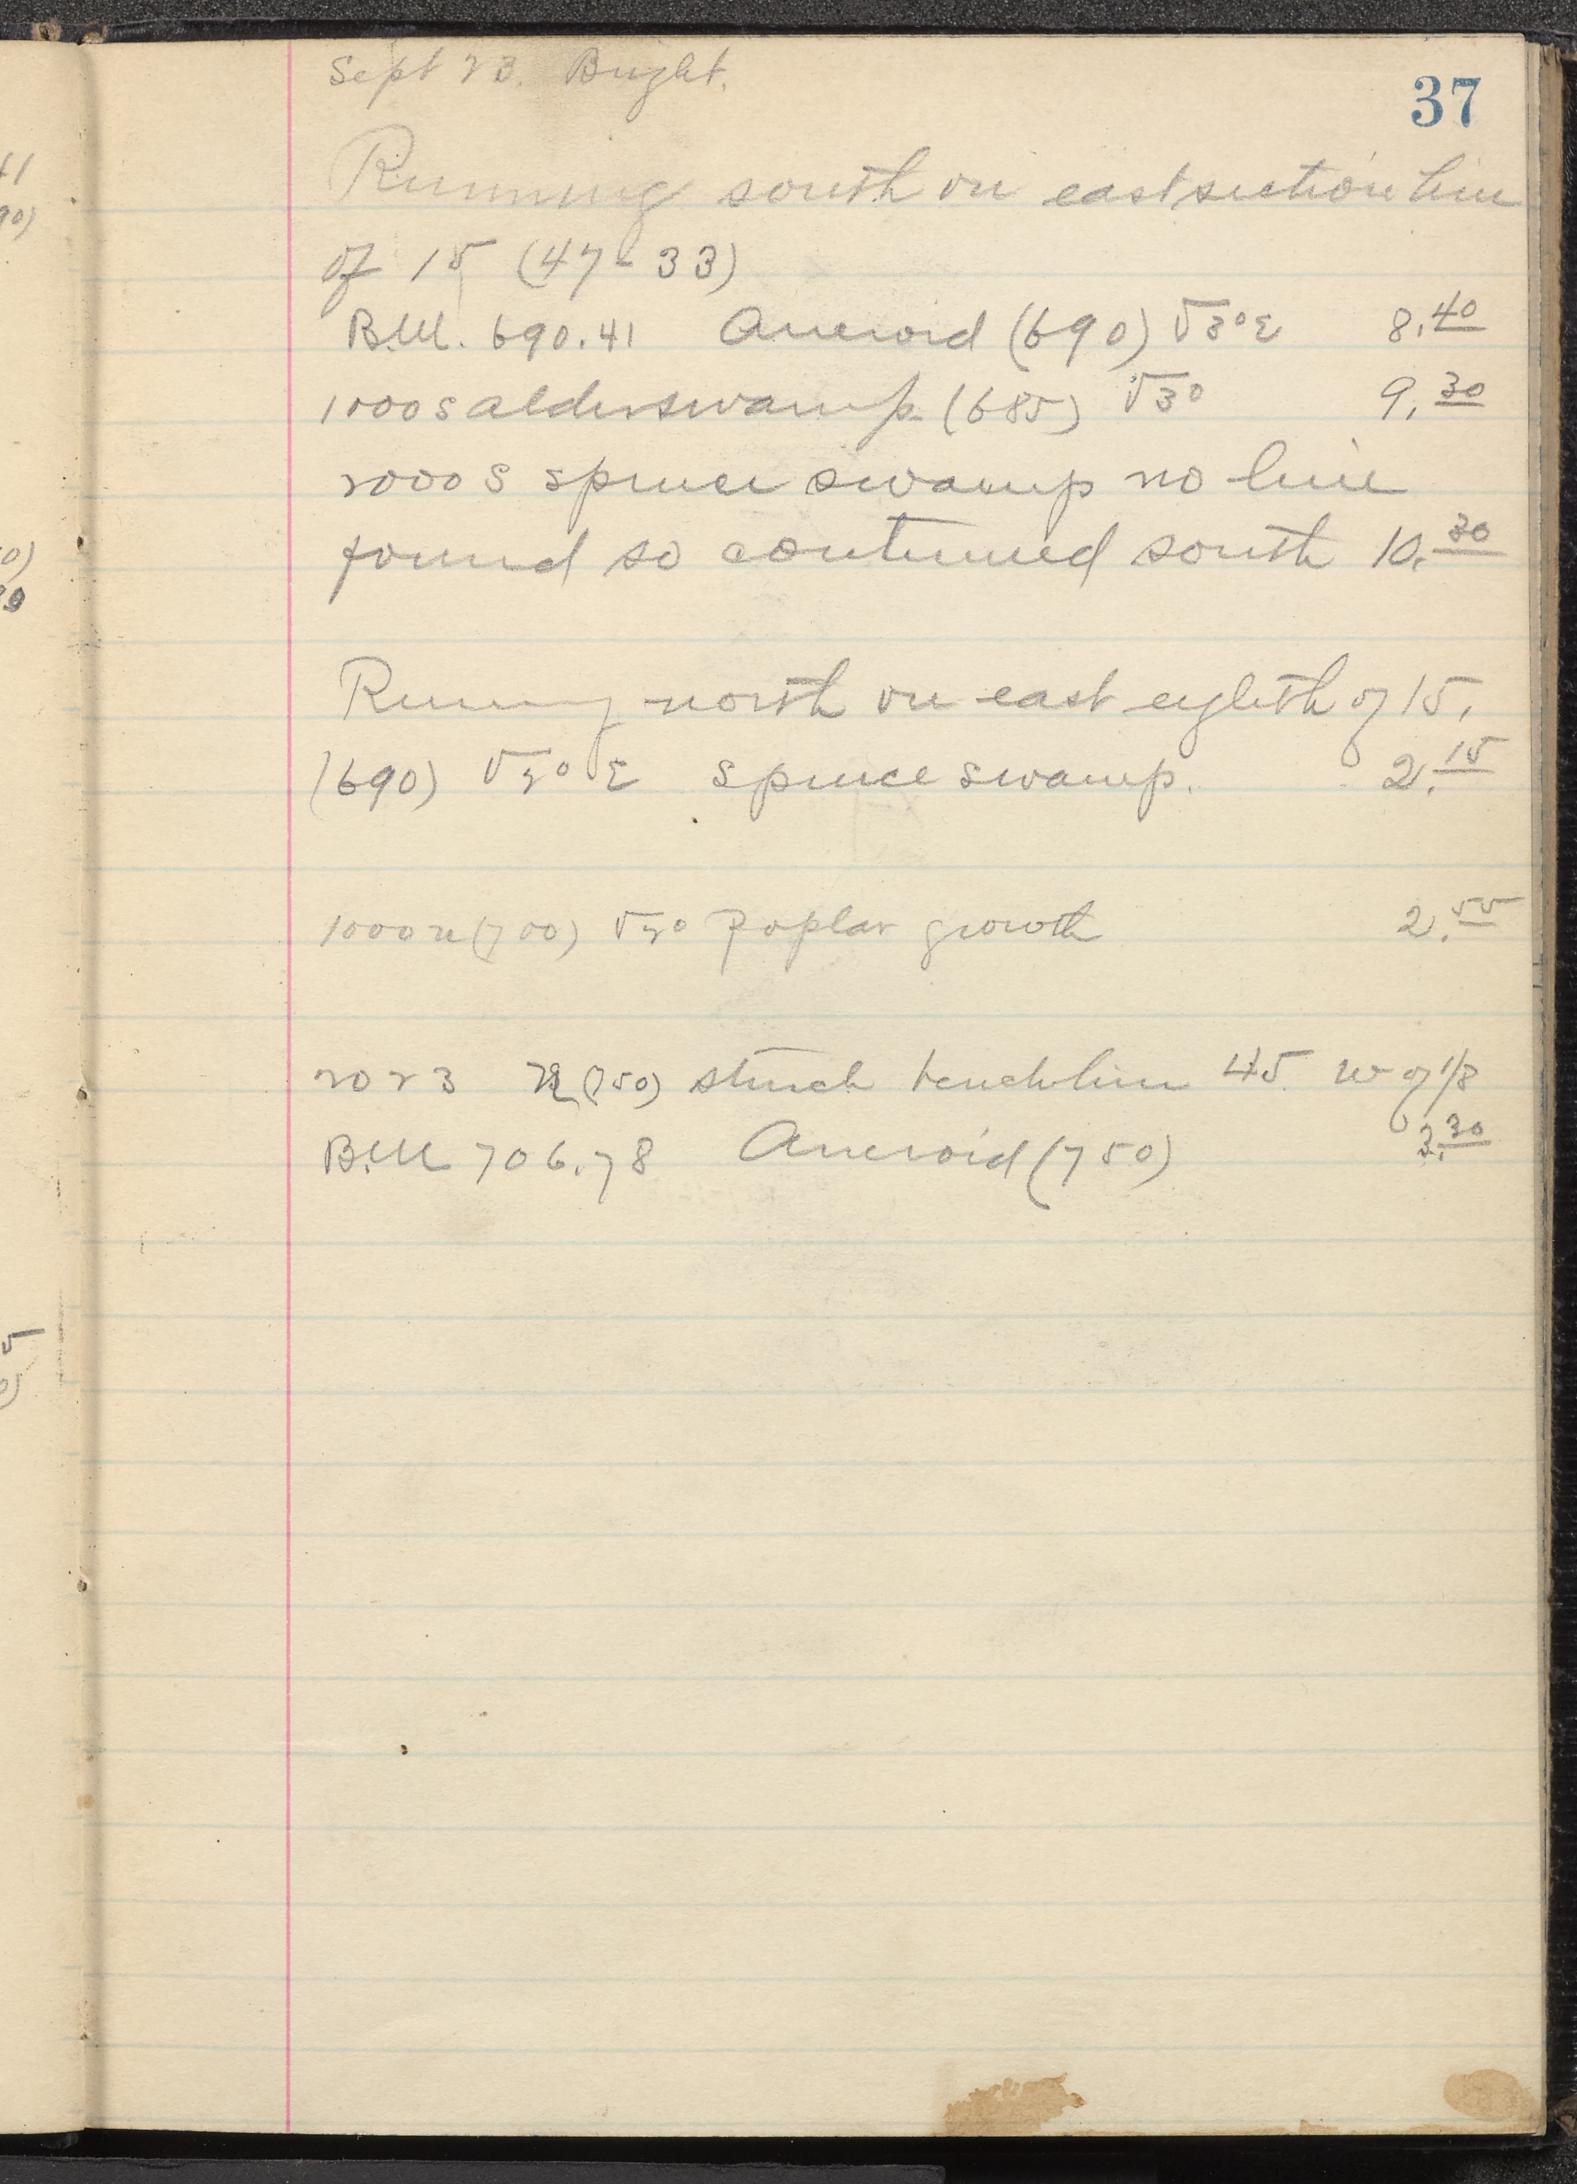 37
Sept 23. Bright.
Running south on east section line
of 15 (47-33)
B.M. 690.41 Aneroid (690) V 3° E 8.40
1000 S alder swamp (685) V 3° 9.30
2000 S spruce swamp no line
found so continued south 10.30
Running north on east eighth of 15.
(690) V 2° E spruce swamp. 2.15
1000 n (700) V 2° Poplar growth 2.55
2023 N (750) struck benchline 45 w of 1/8
B.M 706.78 Aneroid (750) 3.30